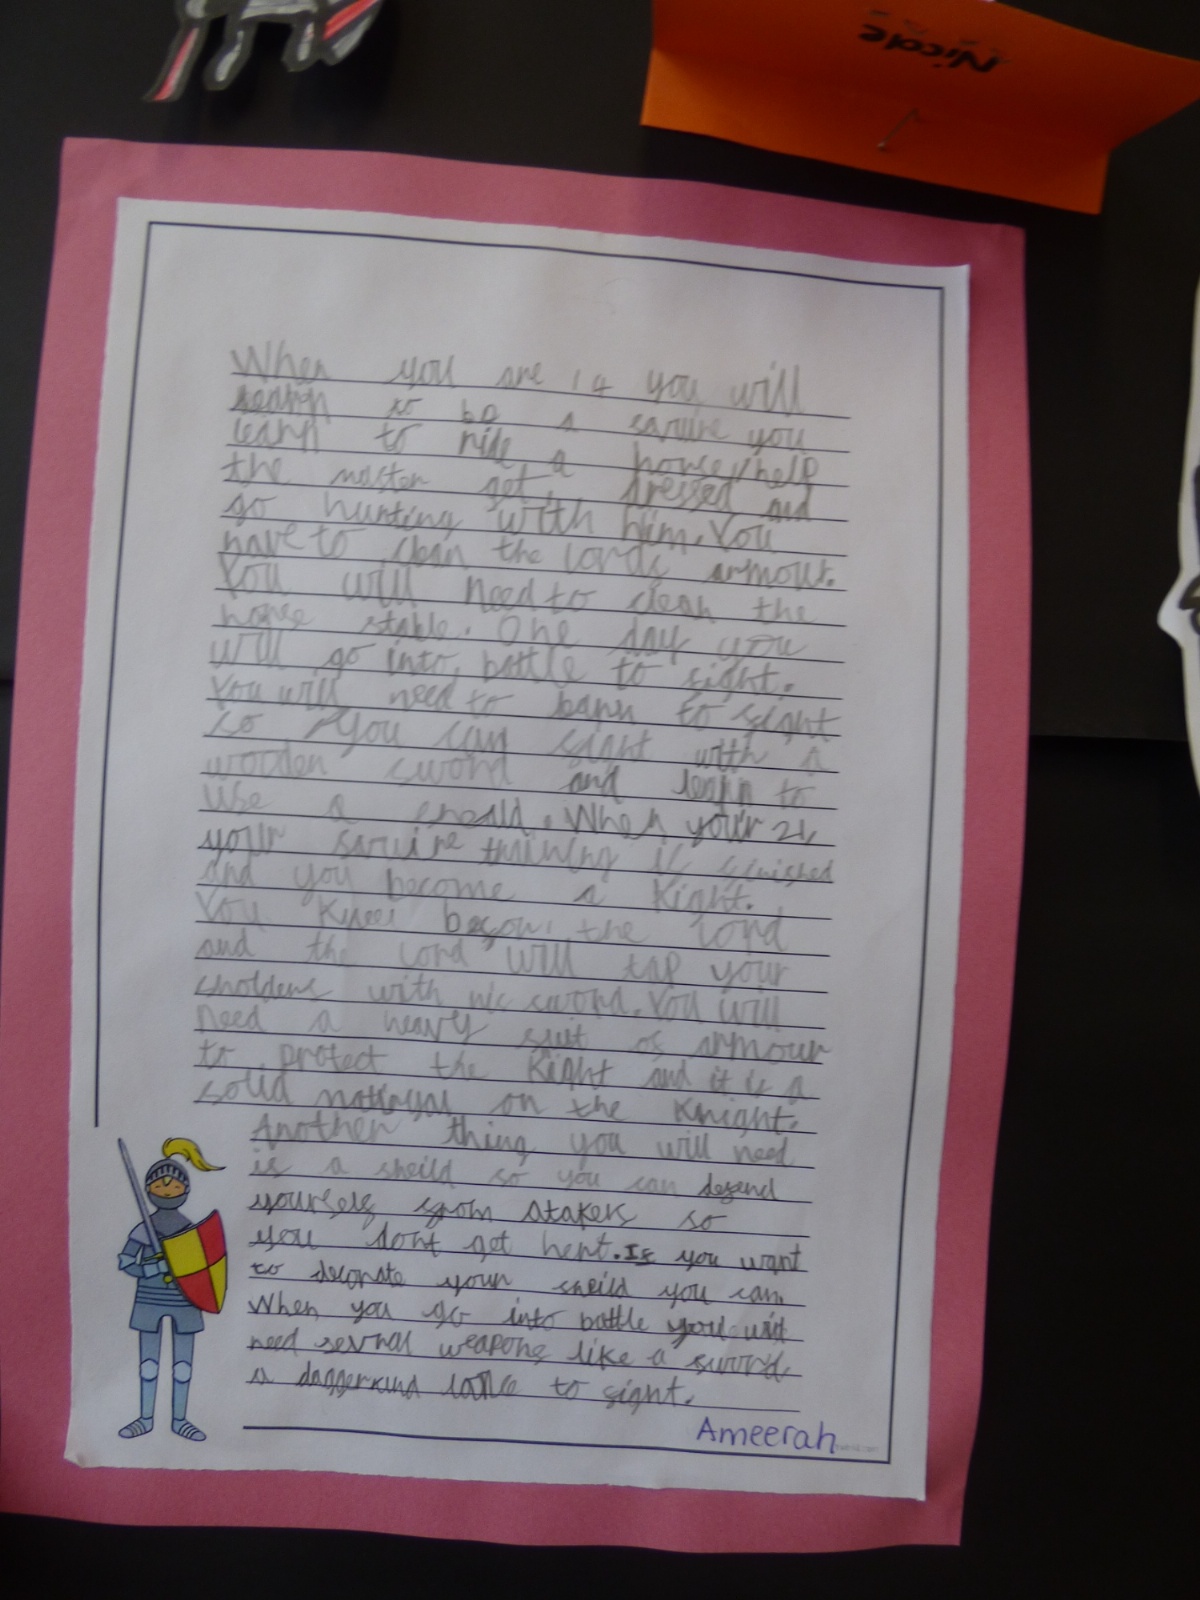 Nicole
When you are 14 you will
to be a you
learn to ride a horse, help
the master get dressed and
go hunting with him. You
have to clean the lords armour.
You will need to clean the
horse stable. One day you
will go into battle to fight.
You will need to to fight
so you can fight with a
wooden sword and learn to
use a sheald. When your 21,
your training is finished
and you become a Kight.
You kneel the lord
and the lord will tap your
with his sword. You will
need a heavy suit of armour
to protect the Kight and it is a
solid on the Knight.
Another thing you will need
is a sheild so you can defend
yourself from atakers so
you dont get hert. If you want
to decorate your sheild you can.
When you go into battle you will
need several weapons like a sword,
a dagger and lance to fight.
Ameerah